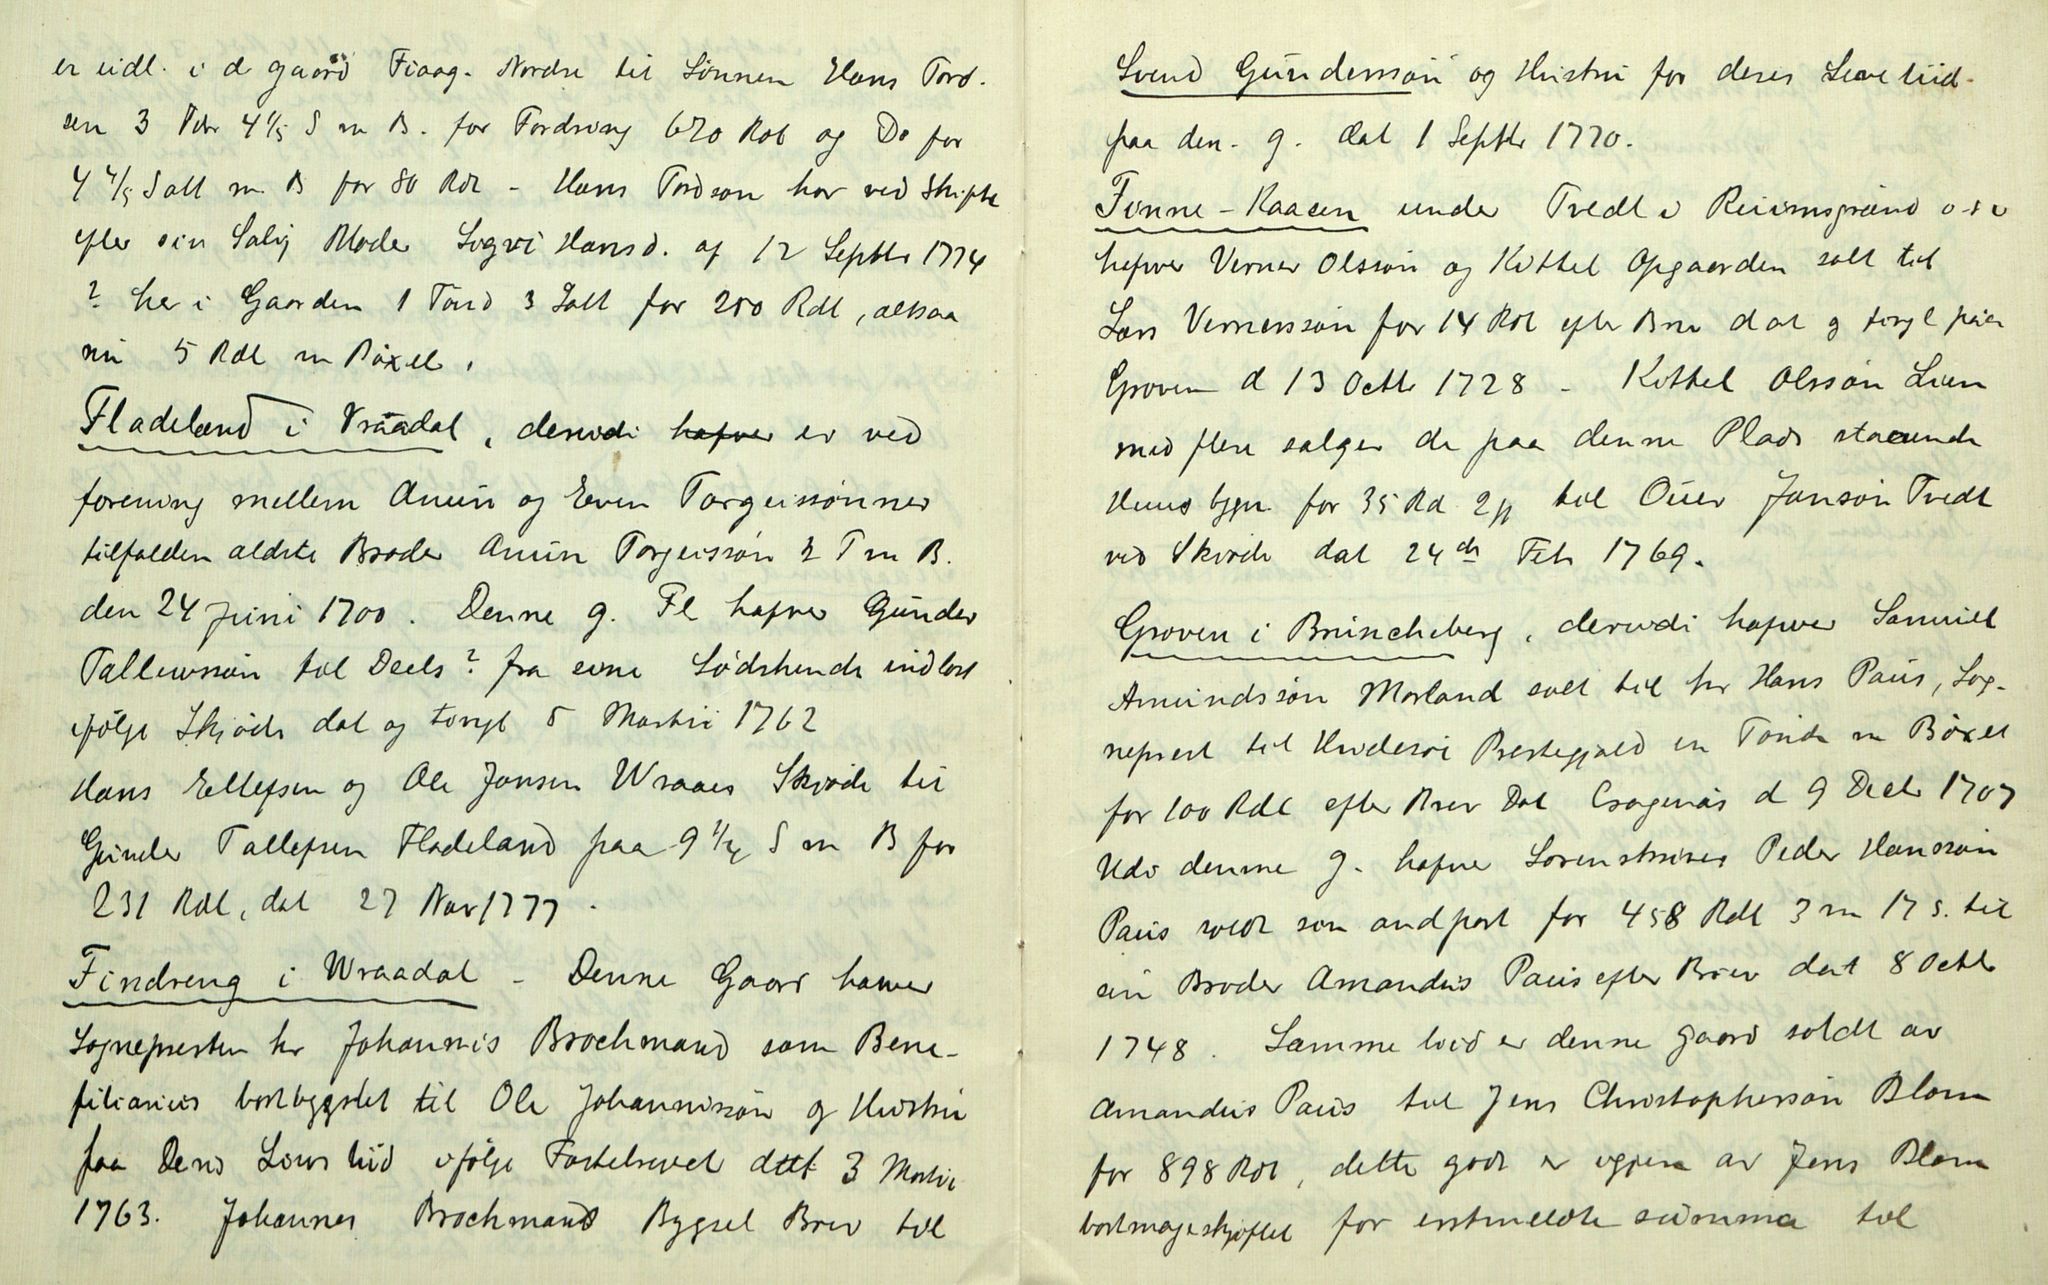 er udl. i d gaard Fiaag. Nordre til Sønnen Hans Tord-
sen 3 4 1/5 S m B. for Fordring 670 Rdl og Do for
4 4/5 Satt m B for 80 Rdl - Hans Tordson har ved Skifte
efter sin Salig Moder Sigvi Hansd. af 12 Septbr 1774
? her i Gaarden 1 Tønd 3 Satt for 250 Rdl, altsaa
nu 5 Rdl m Bøxel.
Fladeland i Vraadal, derudi hafver er ved
forening mellem Anun og Even Torgeissønner
tilfalden ældste Broder Anun Torgeissøn 2 T m B.
den 24 Juni 1700. Denne g. Fl hafver Gunder
Tallewsøn tol Deels? fra sine Sødskende indløst
ifølge Skjøde dat og tingl 5 Martii 1762
Hans Ellefsen og Ole Jonsen Wraaes Skjøde til
Gunder Tallefsen Fladeland paa 9 1/4 S m B for
231 Rdl, dat 27 Nov 1777.
Findreng i Wraadal - Denne Gaard hawer
Sognepresten hr Johannis Brochmand som Bene-
ficiarius bortbygslet til Ole Johannissøn og Hustru
paa Deris Liws tiid ifølge Fæstebrevet dat 3 Martii
1763. Johannes Brochmand Bygsel Brev til
Svend Gundersøn og Hustru for deres Leve tiid
paa den. g. dat 1 Septbr 1770.
Finne-Raaen under Tvedt i Ruimsgrænd o-s-v
hafver Verner Olssøn og Kittel Opgaarden solt til
Lars Vernerssøn for 14 Rdl efter Brev dat og tingl paa
Groven d 13 Octbr 1728 - Kittel Olssøn Lien
med flere sælger de paa denne Plads staaende
Huus bygn for 35 Rd til Oluer Jonsøn Tvedt
ved Skiøde dat 24de Feb 1769.
Groven i Bruncheberg, derudi hafver Samuel
Amundssøn Morland solt til hr Hans Paus, Sog-
neprest til Hvidesøi Prestegjæld en Tønde m Bøxel
for 100 Rdl efter Brev Dat Cragerøs d 9 Decbr 1707
Udi denne g. hafver Sorenskriver Peder Hanssøn
Paus soldt sin andpart for 458 Rdl 3 m 17 s. til
sin Broder Amandus Paus efter Brev dat 8 Octbr
1748. Samme tiid er denne gaard soldt av
Amandus Paus til Jens Christophersøn Blom
for 898 Rdl, dette gods er igjen av Jens Blom
bortmageskjiftet for indmeldte summa til